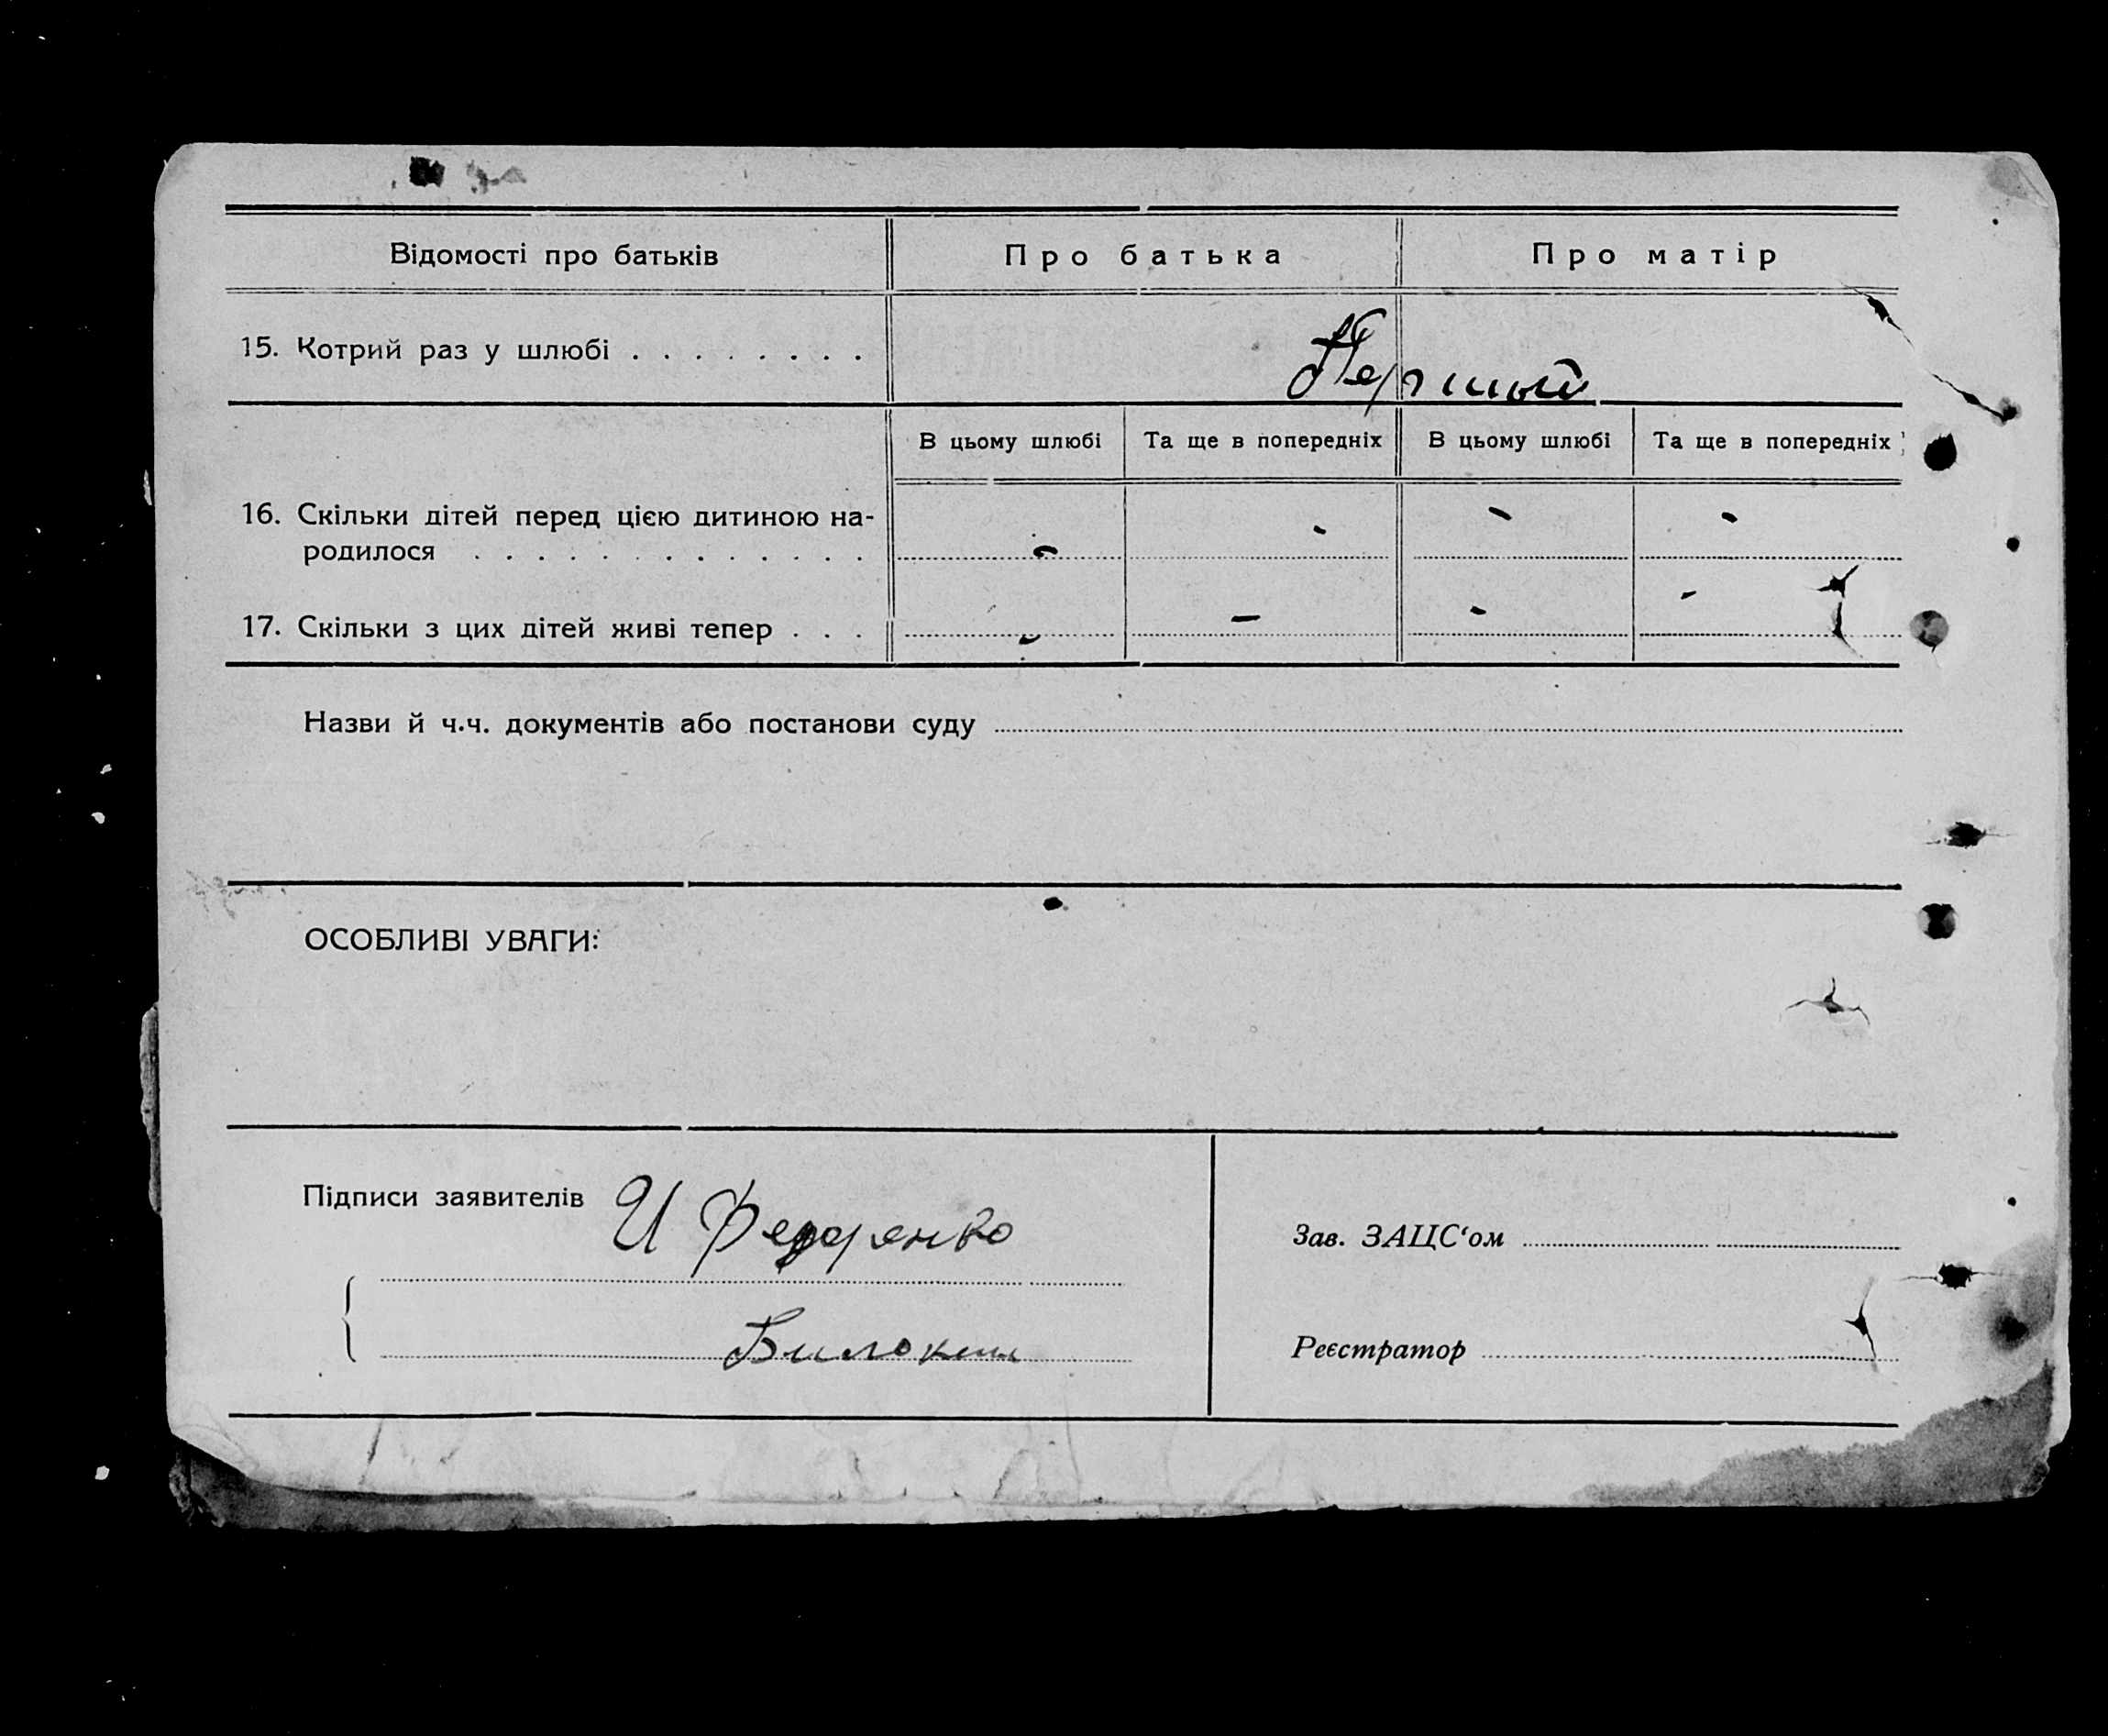 Відомості про батьків Про батька Про матір
15. Котрий раз у шлюбі . . . . . . . . Першый
В цьому шлюбі Та ще в попередніх В цьому шлюбі Та ще в попередніх
16. Скільки дітей перед цією дитиною на-
родилося . . . . . . . . . . . . . - - - -
17. Скільки з цих дітей живі тепер . . . - - - -
Назви й ч.ч. документів або постанови суду
ОСОБЛИВІ УВАГИ:
Підписи заявителів И Федоренко
Зав. ЗАЦС‘ом
Реєстратор